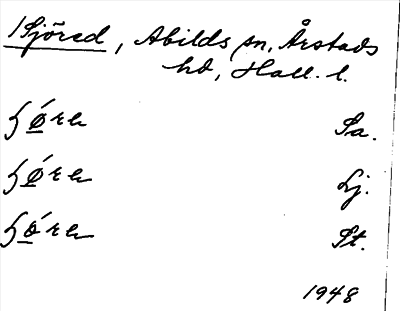 1 Sjöred, Abilds sn, Årstads
hd, Hall. l.
ʃǿ̱re Sa.
ʃǿ̱re Lj.
ʃö̱́re St.
1948